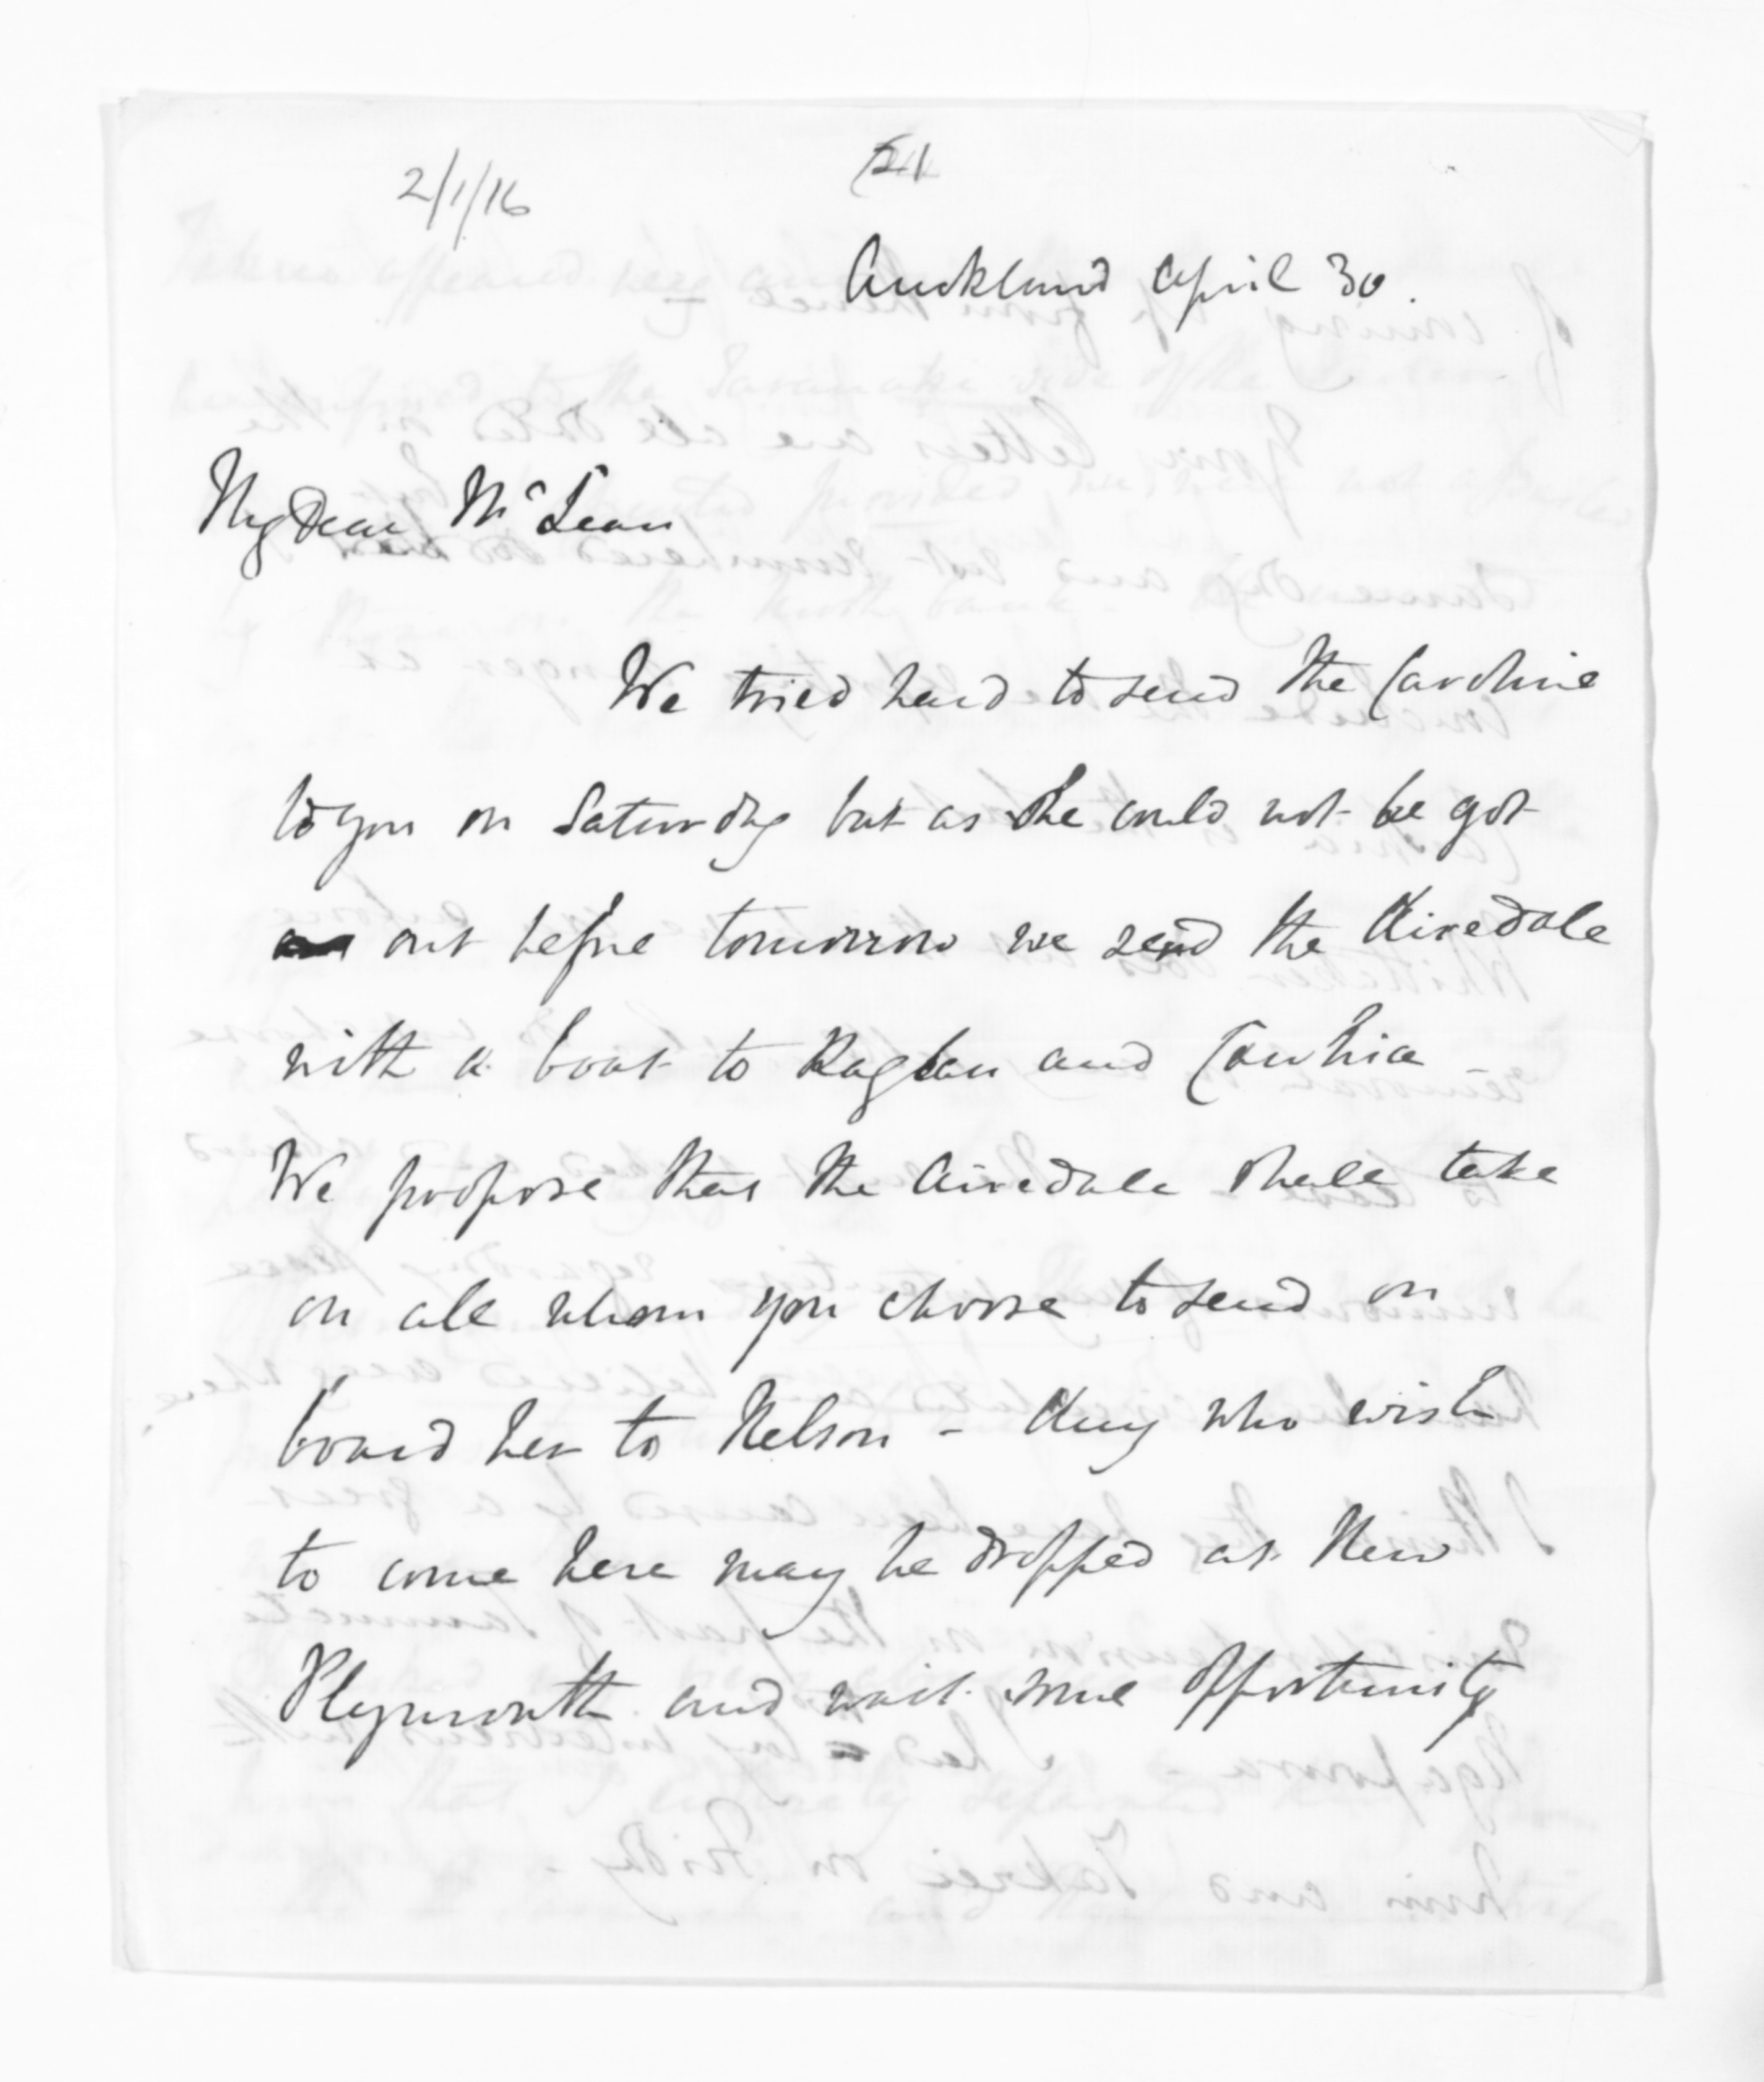 2/1/16
Auckland April 30.
My Dear McLean
We tried hard to send the Caroline
to you on Saturday but as she could not be got
out before tomorrow we send the Airedale
with a boat to Raglan and Cawhia -
We propose that the Airedale shall take
on all whom you choose to send on
board her to Nelson - Any who wish
to come here may be dropped at New
Plymouth and wait some opportunity